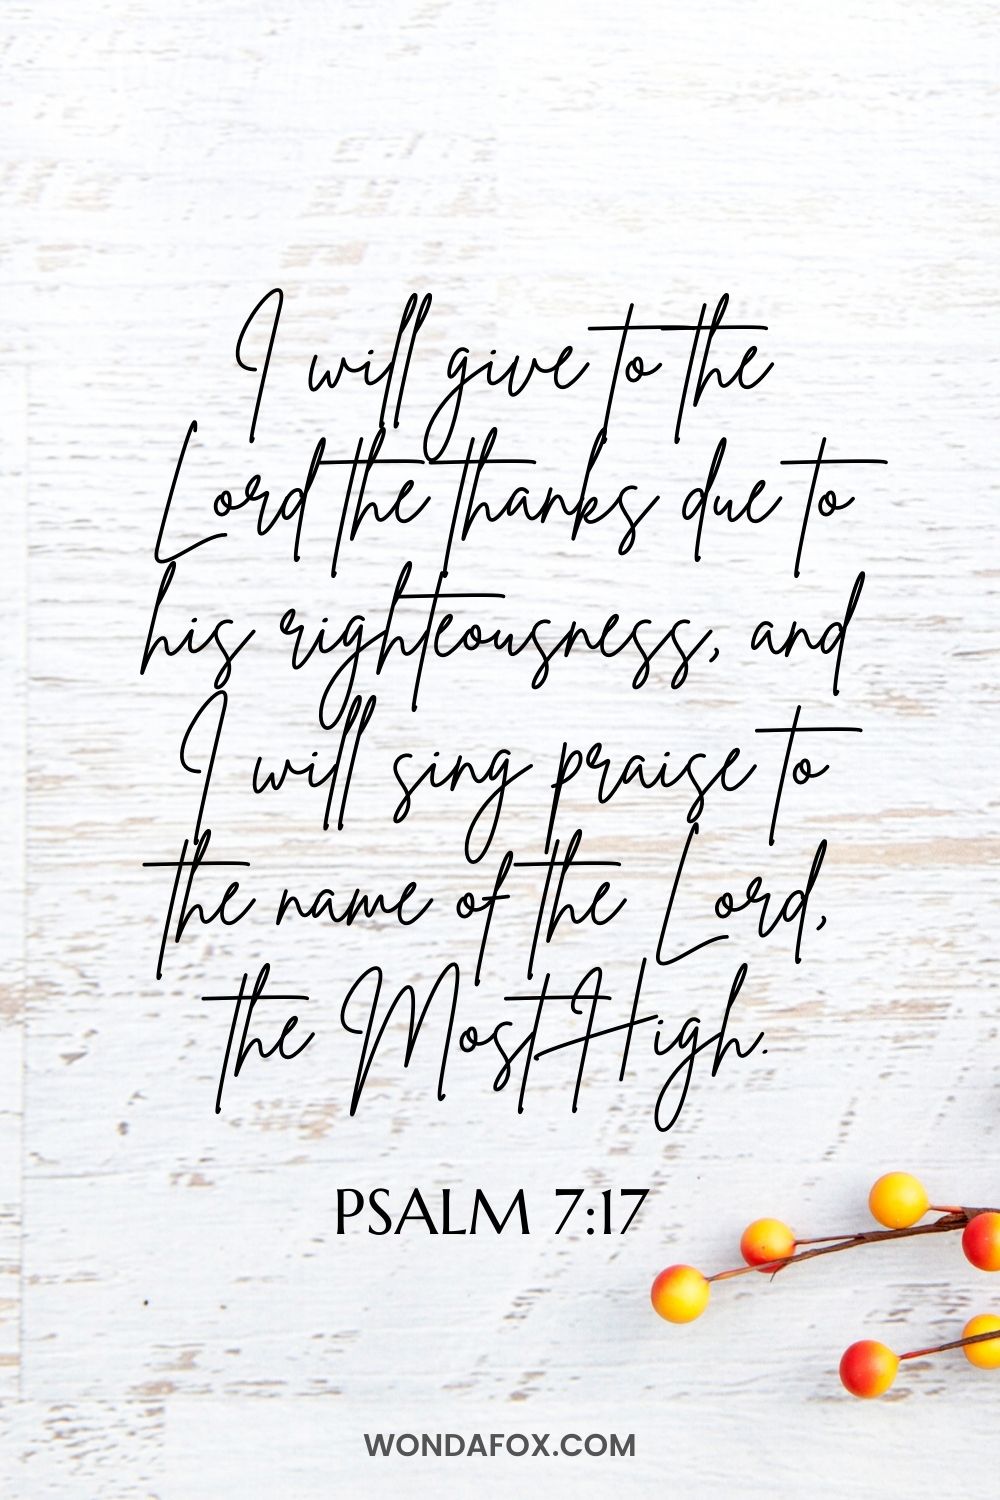 I will give to the
Lord the thanks due to
his righteousness, and
I will sing praise to
the name of the Lord,
the Most High.
PSALM 7:17
WONDAFOX.COM